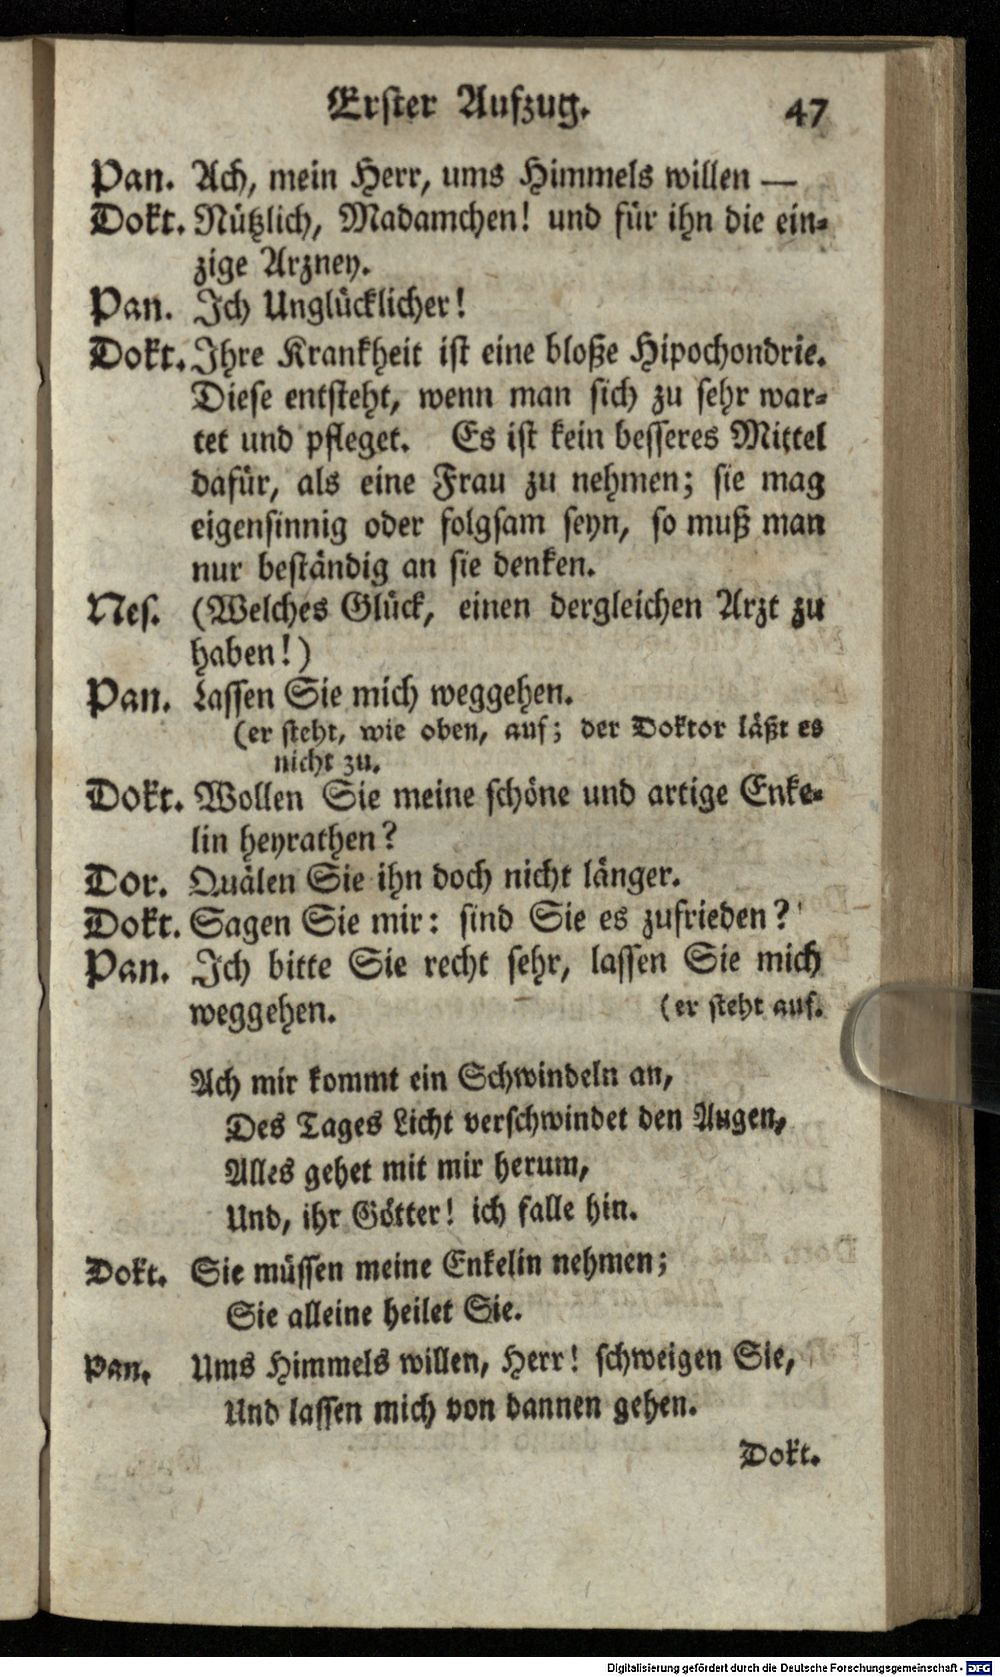 Erster Aufzug. 47
Pan. Ach, mein Herr, ums Himmels willen —
Dokt. Nützlich, Madamchen! und für ihn die ein-
zige Arzney.
Pan. Ich Unglücklicher!
Dokt. Ihre Krankheit ist eine bloße Hipochondrie.
Diese entsteht, wenn man sich zu sehr war-
tet und pfleget. Es ist kein besseres Mittel
dafür, als eine Frau zu nehmen; sie mag
eigensinnig oder folgsam seyn, so muß man
nur beständig an sie denken.
Nes. (Welches Glück, einen dergleichen Arzt zu
haben!)
Pan. Lassen Sie mich weggehen.
(er steht, wie oben, auf; der Doktor läßt es
nicht zu.
Dokt. Wollen Sie meine schöne und artige Enke-
lin heyrathen?
Dor. Quälen Sie ihn doch nicht länger.
Dokt. Sagen Sie mir: sind Sie es zufrieden?
Pan. Ich bitte Sie recht sehr, lassen Sie mich
weggehen. (er steht auf.
Ach mir kommt ein Schwindeln an,
Des Tages Licht verschwindet den Augen,
Alles gehet mit mir herum,
Und, ihr Götter! ich falle hin.
Dokt. Sie müssen meine Enkelin nehmen;
Sie alleine heilet Sie.
Pan. Ums Himmels willen, Herr! schweigen Sie,
Und lassen mich von dannen gehen.
Dokt.
Digitalisierung gefördert durch die Deutsche Forschungsgemeinschaft - DFG